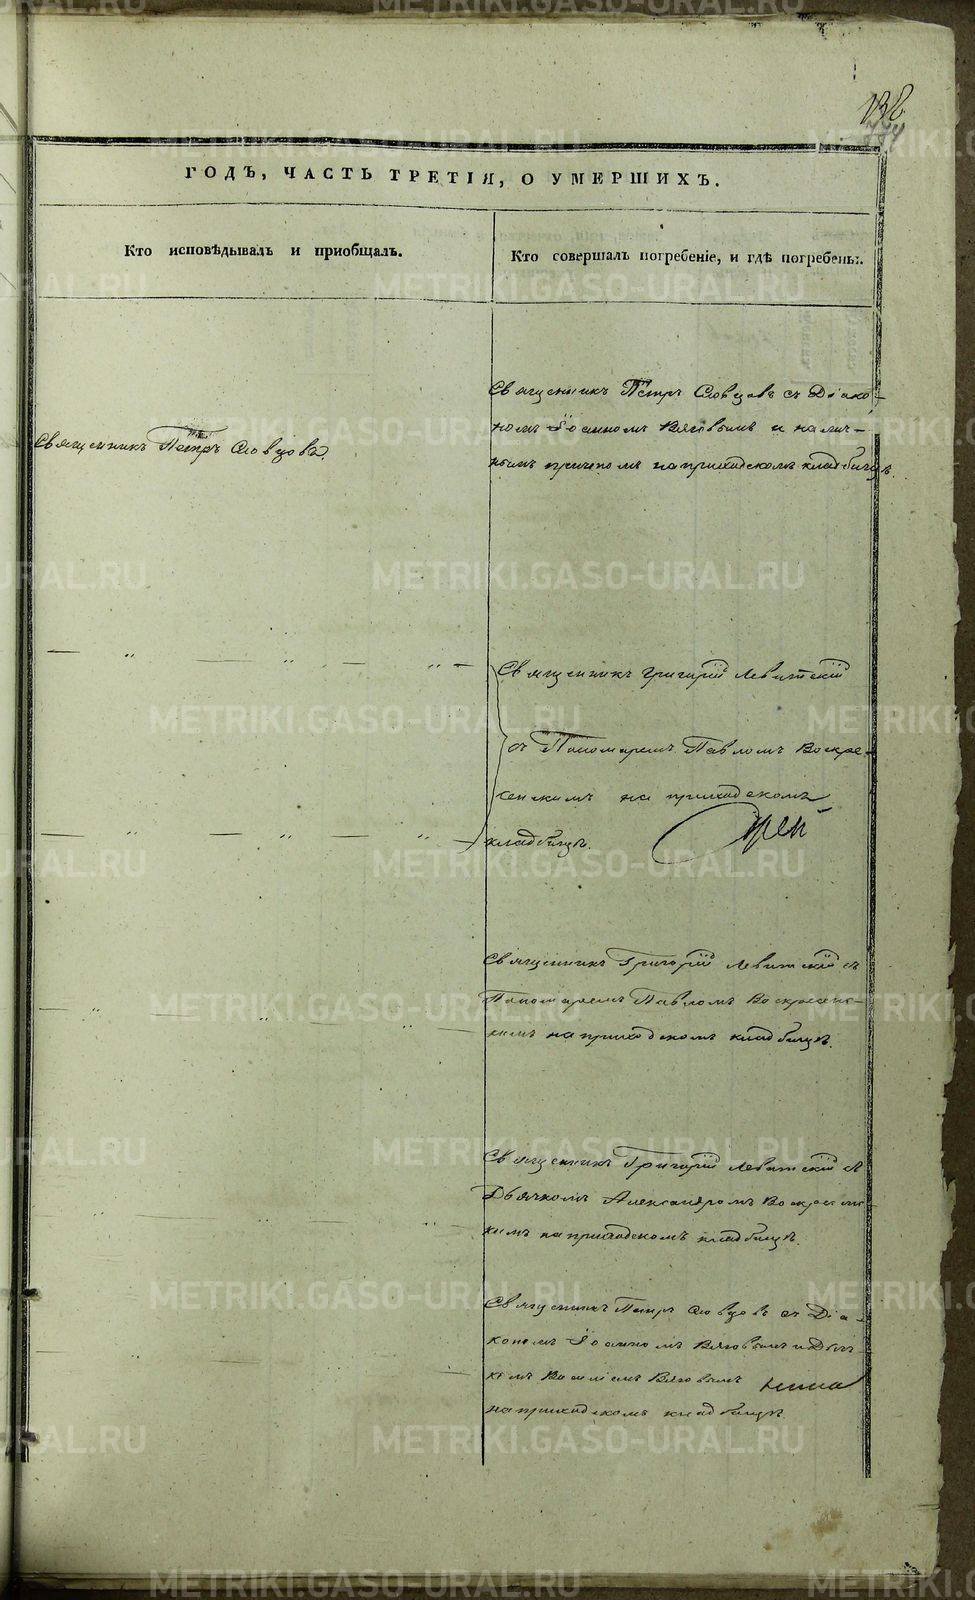 138
774
ГОДЪ, ЧАСТЬ ТРЕТІЯ, О УМЕРШИХЪ.
Кто исповѣдывалъ и приобщалъ.
Кто совершалъ погребеніе, и гдѣ погребены.
Священникъ Петръ Словцовъ.
Священникъ Петръ Словцовъ съ Діако-
номъ Іоанномъ Вяговымъ и налич-
нымъ причтомъ на приходскомъ кладбищѣ.
— „ — „ — „ —
Священникъ Григорій Левитскій
съ Пономаремъ Павломъ Воскре-
сенскимъ на приходскомъ
кладбищѣ.
— „ — „ — „ —
Священникъ Григорій Левитскій съ
Пономаремъ Павломъ Воскресенс-
кимъ на приходскомъ кладбищѣ.
Священникъ Григорій Левитскій съ
Дьячкомъ Александромъ Воскресенс-
кимъ на приходскомъ кладбищѣ.
Священникъ Петръ Словцовъ съ Діа-
кономъ Іоанномъ Вяговымъ и Дьяч-
комъ Василіемъ Вяговымъ
на приходскомъ кладбищѣ.
METRIKI.GASO-URAL.RU